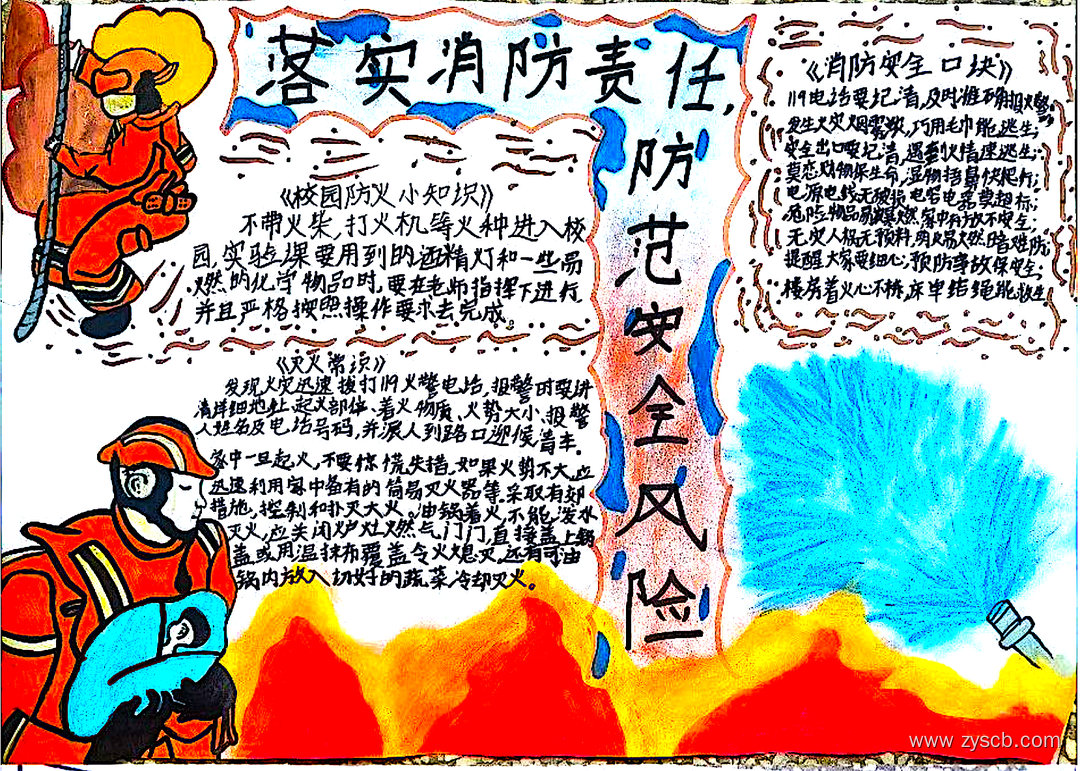 落实消防责任，
防范安全风险
《校园防火小知识》
不带火柴，打火机等火种进入校
园，实验课要用到的酒精灯和一些易
燃的化学物品时，要在老师指挥下进行，
并且严格按照操作要求去完成。
《灭火常识》
发现火灾迅速拨打119火警电话，报警时要讲
清详细地址、起火部位、着火物质、火势大小、报警
人姓名及电话号码，并派人到路口迎候消车。
家中一旦起火，不要惊慌失措，如果火势不大，应
迅速利用家中备有的简易灭火器等采取有效
措施，控制和扑灭大火。油锅着火，不能泼水
灭火，应关闭炉灶燃气门门，直接盖上锅
盖或用湿抹布覆盖令火熄灭，还有可由
锅内放入切好的蔬菜冷却灭火。
《消防安全口决》
119电话要记清，及时准确报火警；
发生火灾烟雾浓，巧用毛巾能逃生；
安全出口要记清，遇到火情速逃生；
莫恋财物保生命，湿物捂鼻伏爬行；
电源电线无破损，电容电器莫超标；
危险物品易爆燃，家中存放不安全；
无灾人祸无预料，明火易燃暗难防；
提醒大家要细心，预防事故保安全；
楼房着火心不慌，床单结绳能救生
www zyscb.com